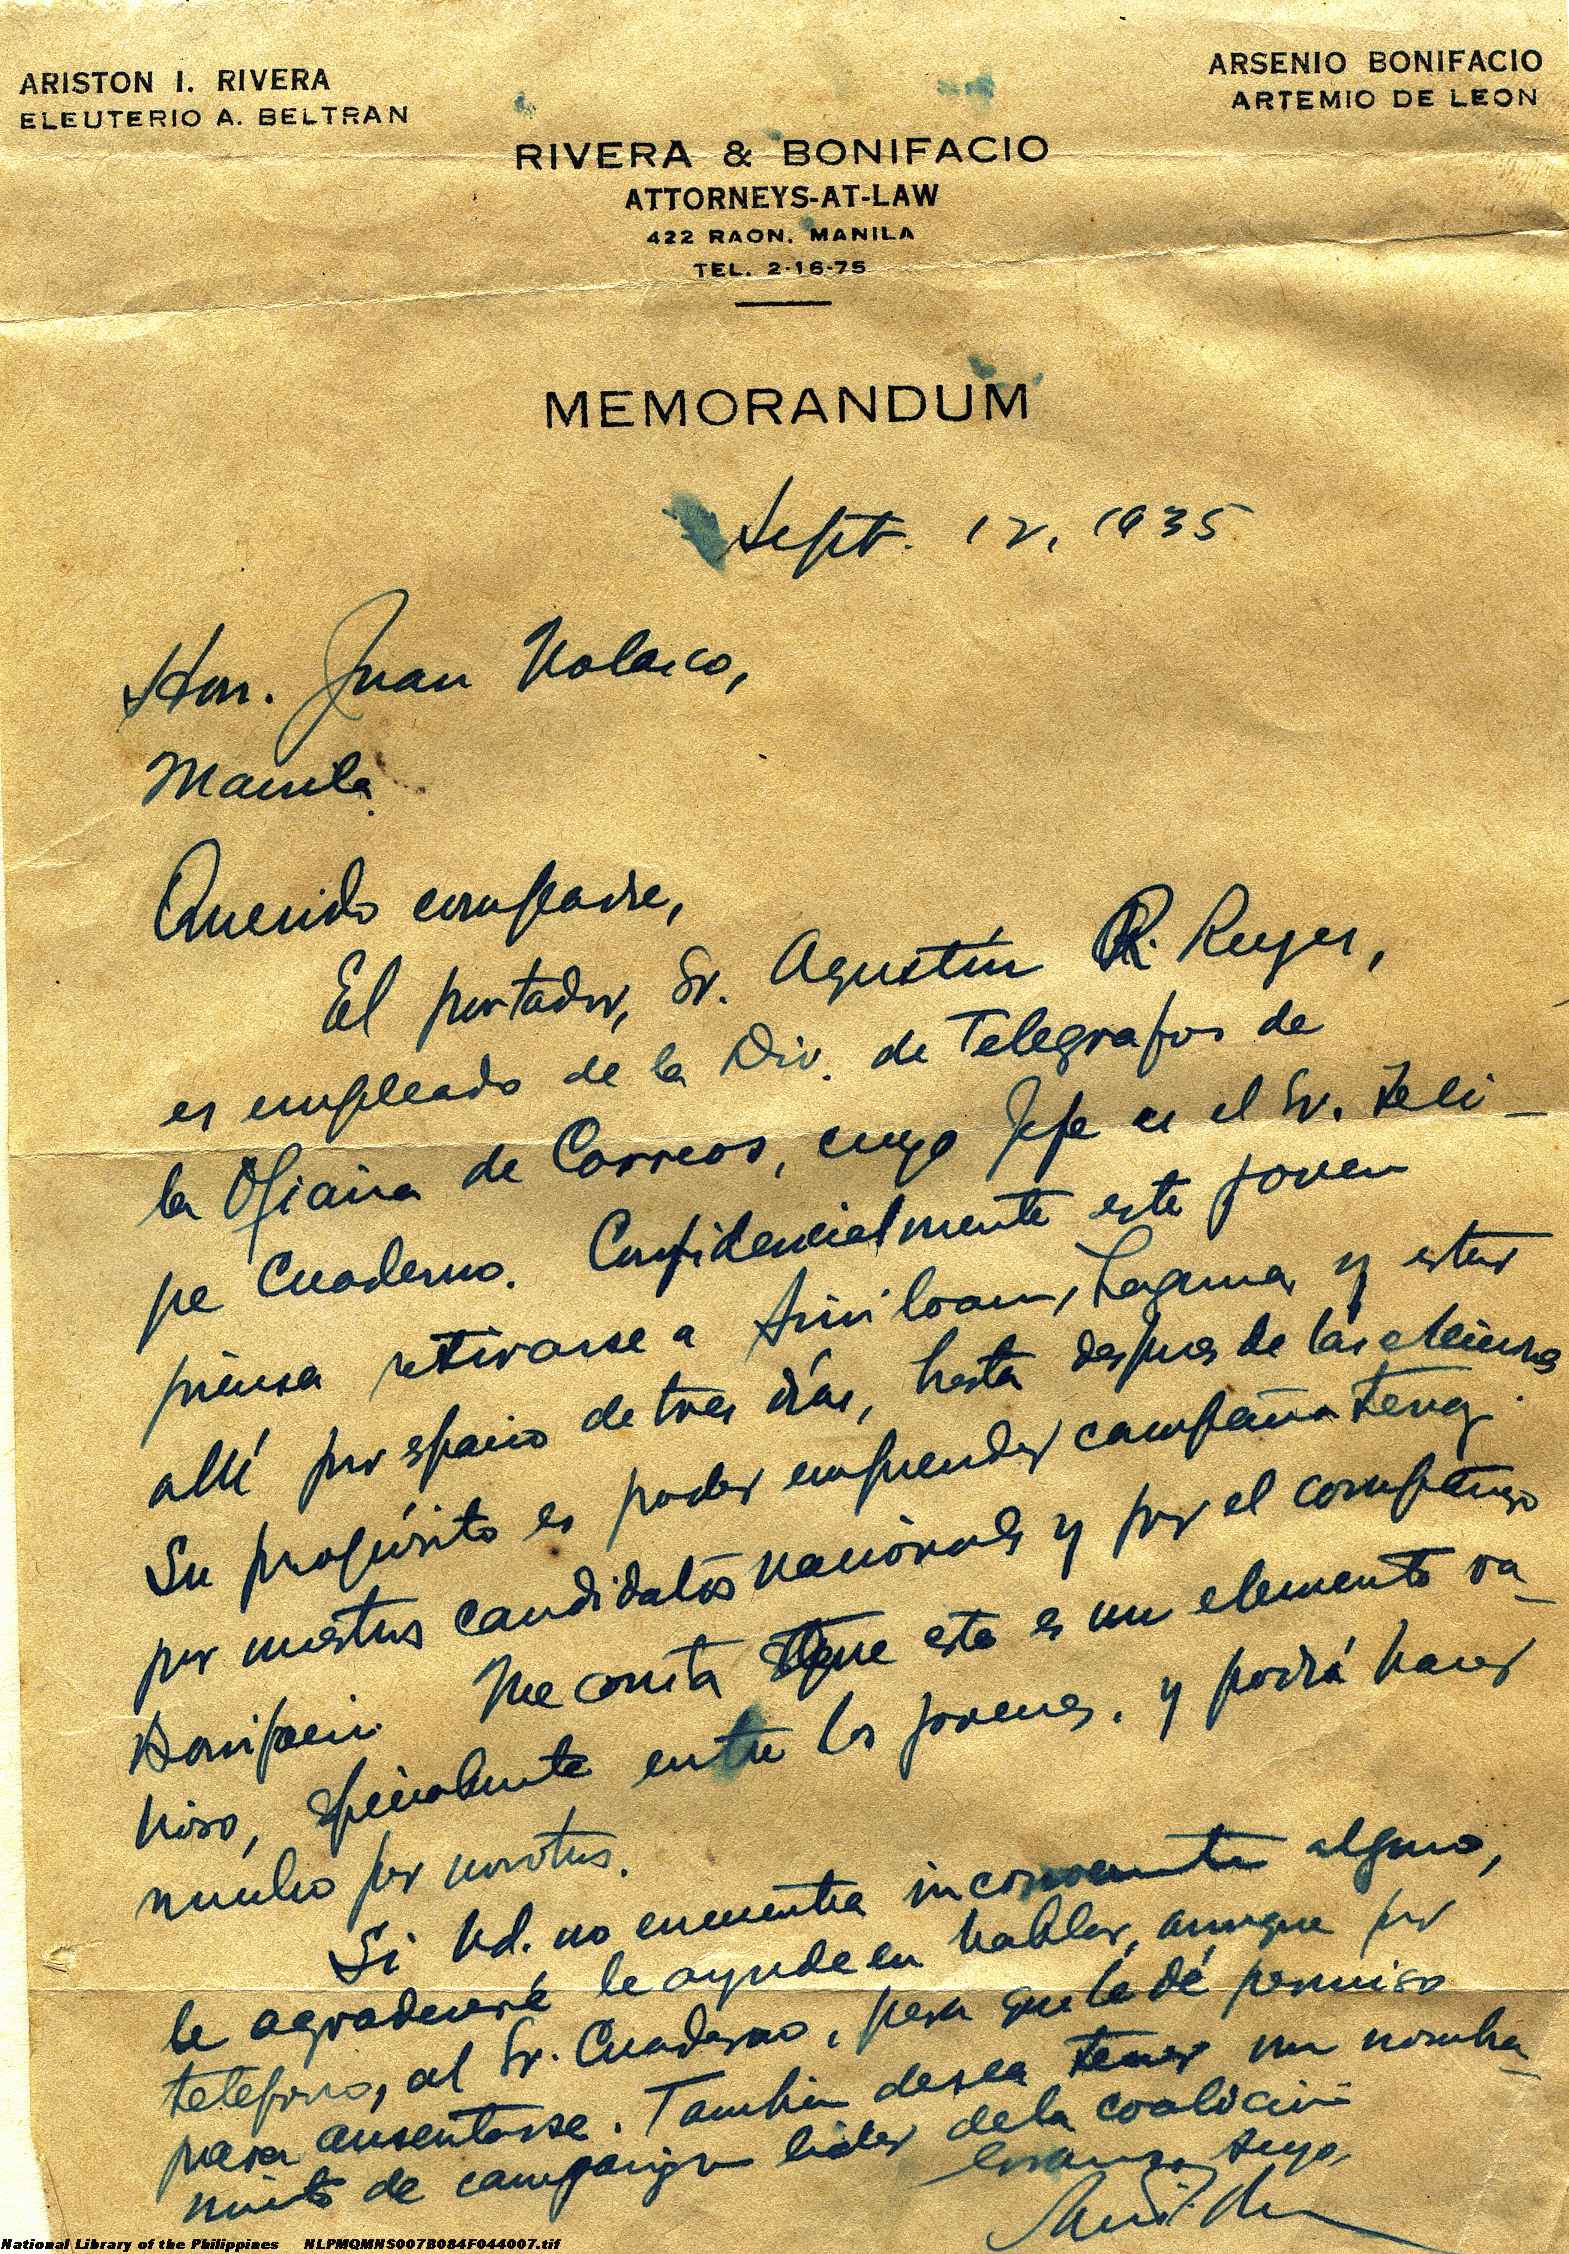 ARISTON I. RIVERA
ELEUTERIO A. BELTRAN
ARSENIO BONIFACIO
ARTEMIO DE LEON
RIVERA & BONIFACIO
ATTORNEYS-AT-LAW
422 RAON, MANILA
TEL. 2-16-75
MEMORANDUM
Sept. 12, 1935
Hon. Juan Nolasco,
Manila.
Querido compadre,
El portador, Sr. Agustín R. Reyes,
es empleado de la Div. de Telegrafos de
la Oficina de Correos, cuyo Jefe es el Sr. Feli-
pe Cuaderno. Confidencialmente este joven
piensa retirarse a Siniloan, Laguna y estar
allí por espacio de tres días, hasta despues de las elecciones
Su propósito es poder emprender campaña
por nuestros candidatos nacionales y por el compañero
Bonifacio. Me consta que este es un elemento va-
lioso, especialmente entre los jovenes. y podrá hacer
mucho por nosotros.
Si Ud. no encuentra inconveniente alguno,
le agradeceré le ayude en hablar, aunque por
telefono, al Sr. Cuaderno, para que le dé permiso
para ausentarse. Tambien desea tener un nombra-
miento de campaign leader de la coalición
suyo,
National Library of the Philippines NLPMQMNS007B084F044007.tif